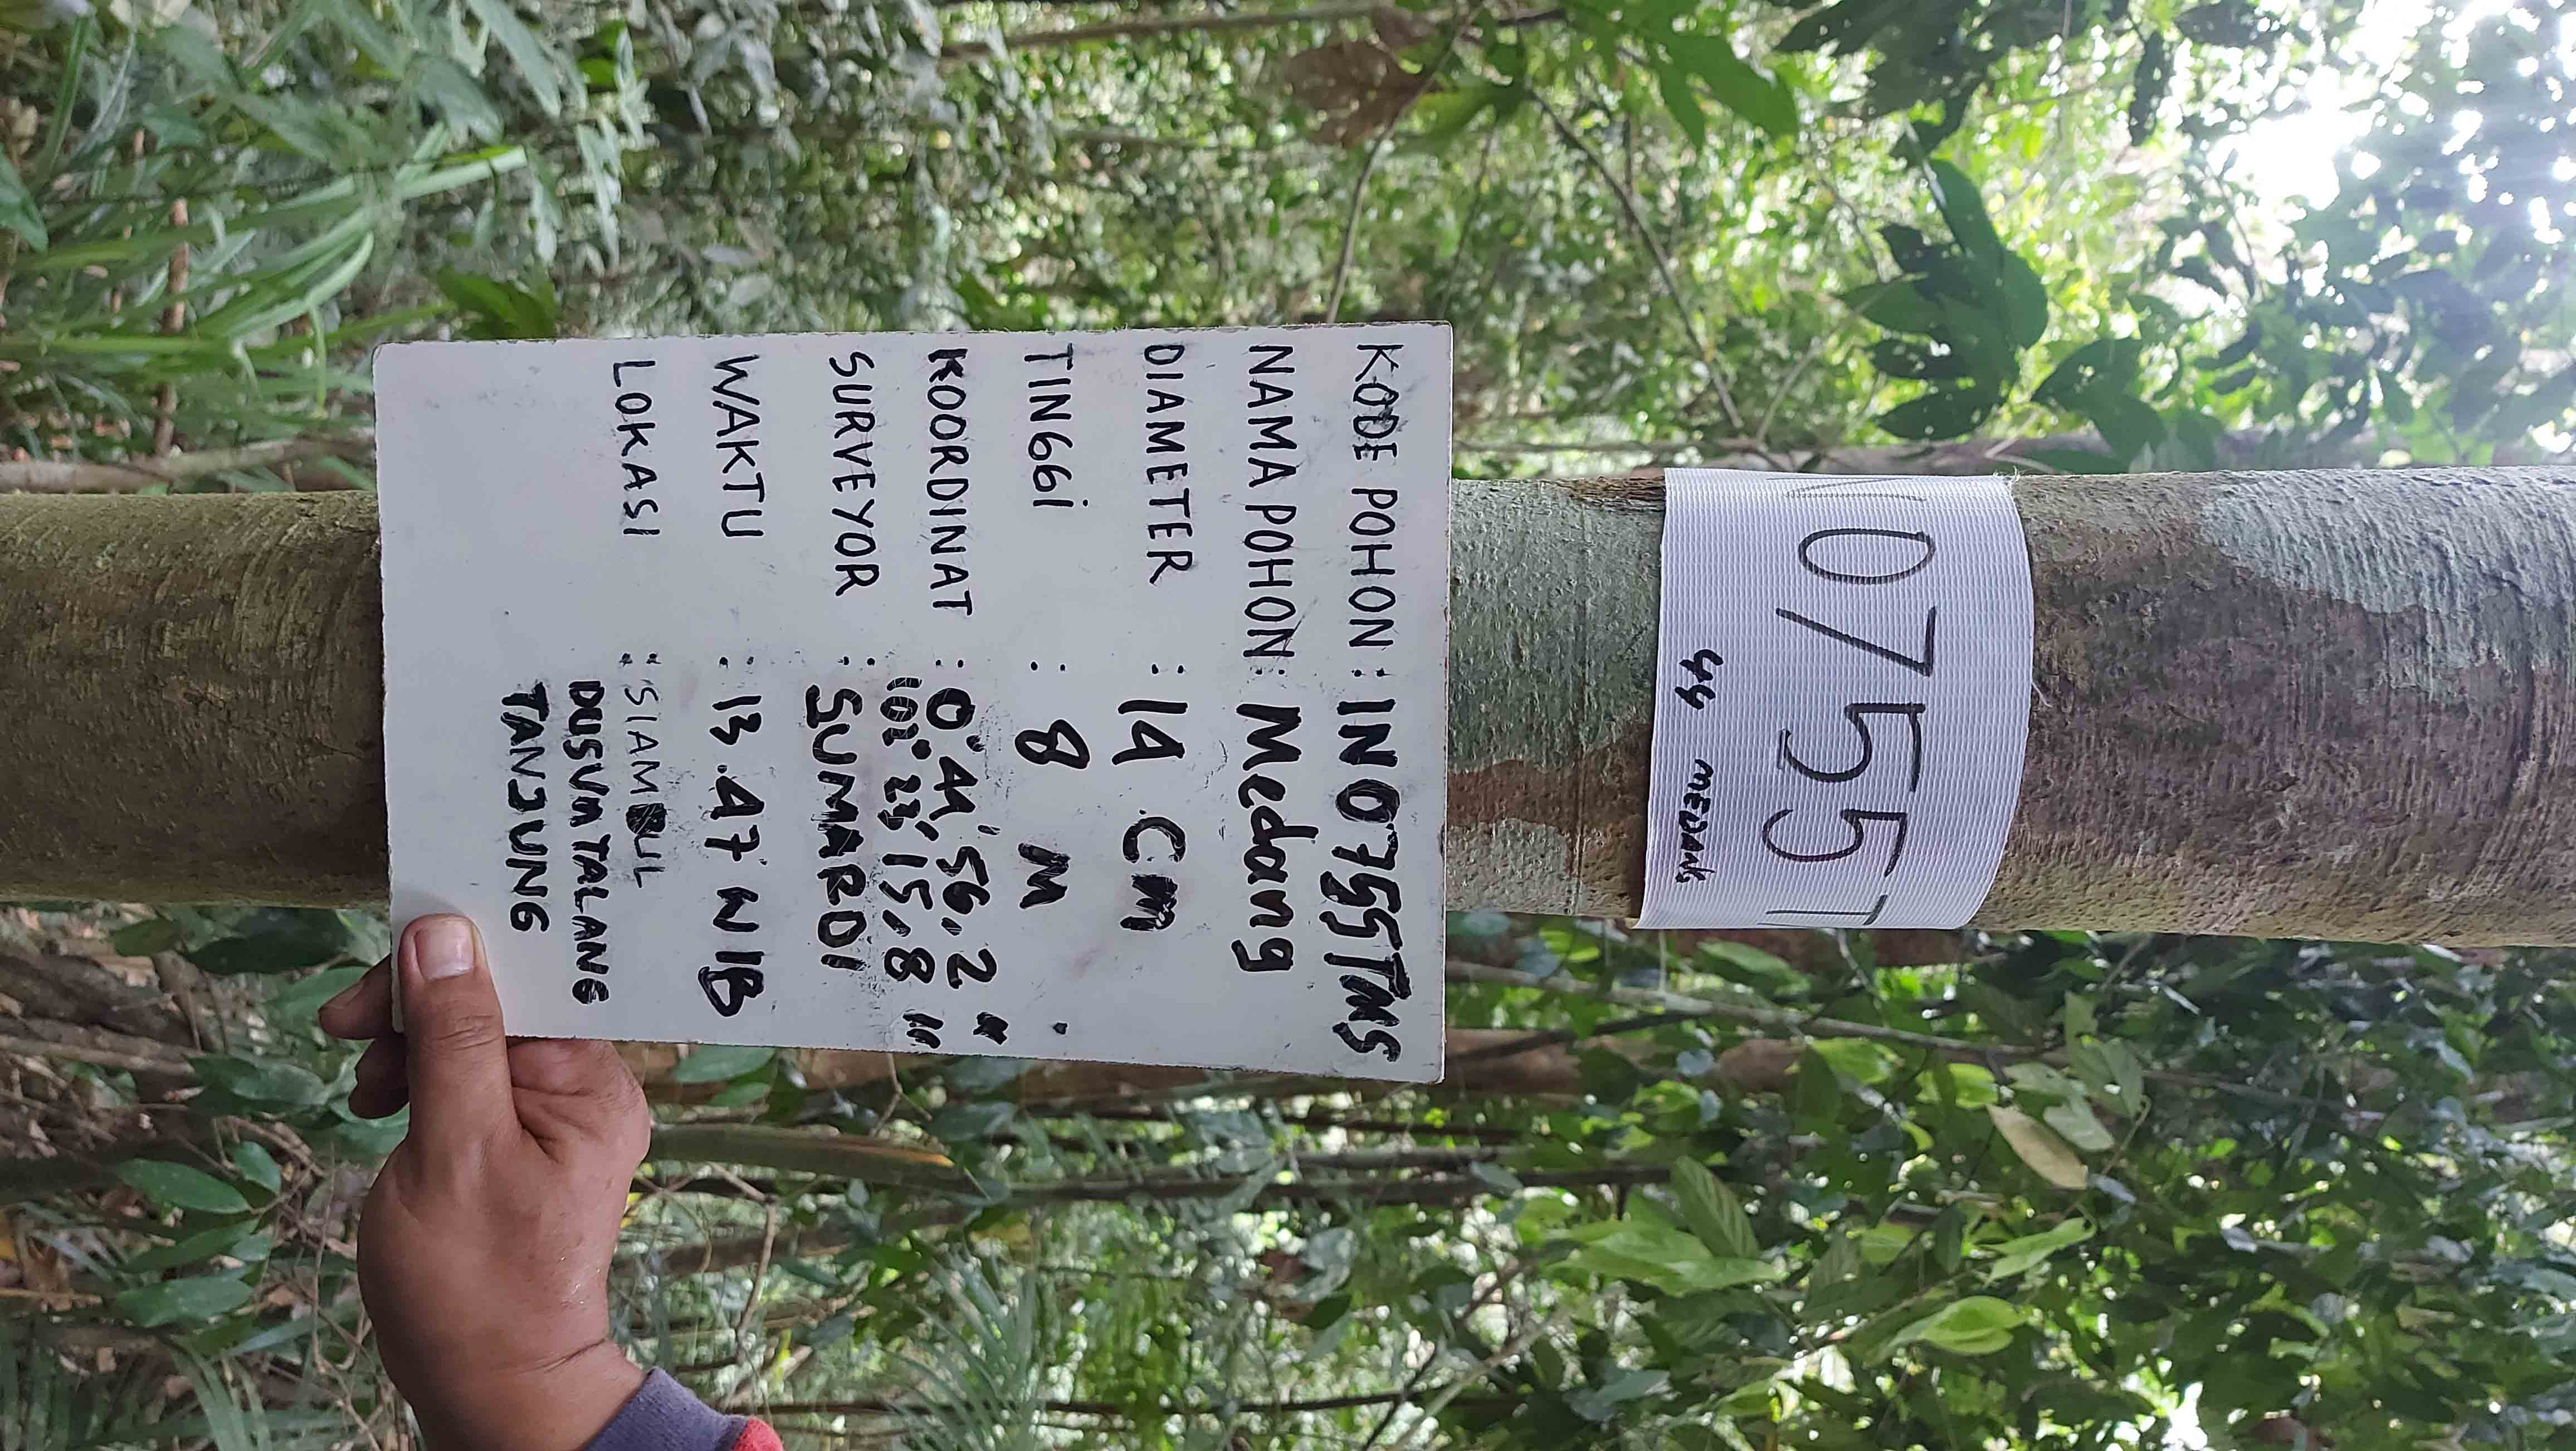 N0755T
44 MEDANG
KODE POHON : IN0755TMS
NAMA POHON : Medang
DIAMETER : 14 Cm
TINGGi : 8 M
KOORDINAT : 0° 44' 56,2 "
102° 23' 15,8 "
SURVEYOR : SUMARDI
WAKTU : 13.47 WIB
LOKASI : SIAMBUL
DUSUM TALANG
TANJUNG